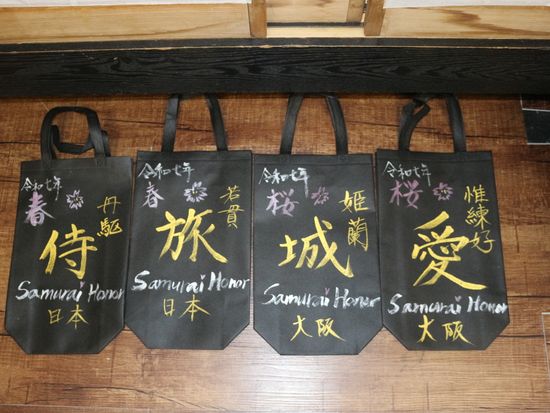 令和七年
春
丹駆
侍
Samurai Honor
日本
令和七年
春
若貫
旅
Samurai Honor
日本
令和七年
桜
姫蘭
城
Samurai Honor
大阪
令和七年
桜
惟練好
愛
Samurai Honor
大阪